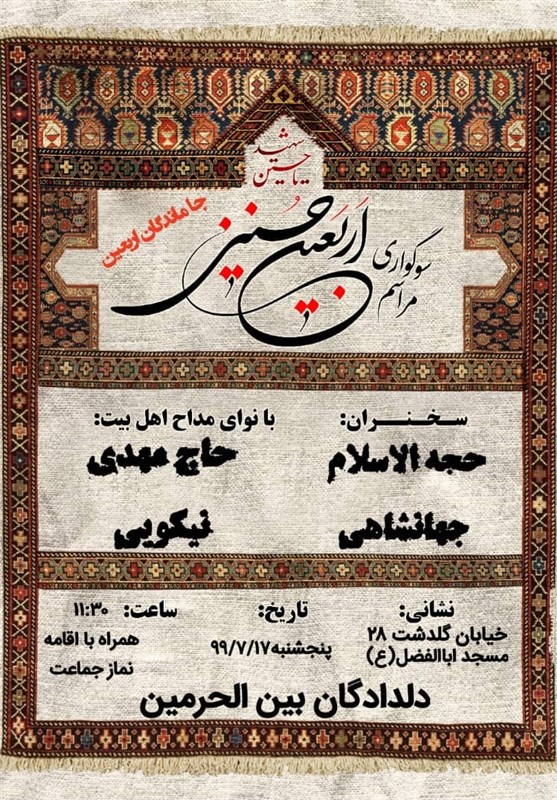 یا حسین شهید
مراسم سوگواری
اربعین حسینی
جا ماندگان اربعین
سخنران:
حجه الاسلام
جهانشاهی
با نوای مداح اهل بیت:
حاج مهدی
نیکویی
نشانی:
خیابان گلدشت ۲۸
مسجد اباالفضل(ع)
تاریخ:
پنجشنبه ۹۹/۷/۱۷
ساعت: ۱۱:۳۰
همراه با اقامه
نماز جماعت
دلدادگان بین الحرمین